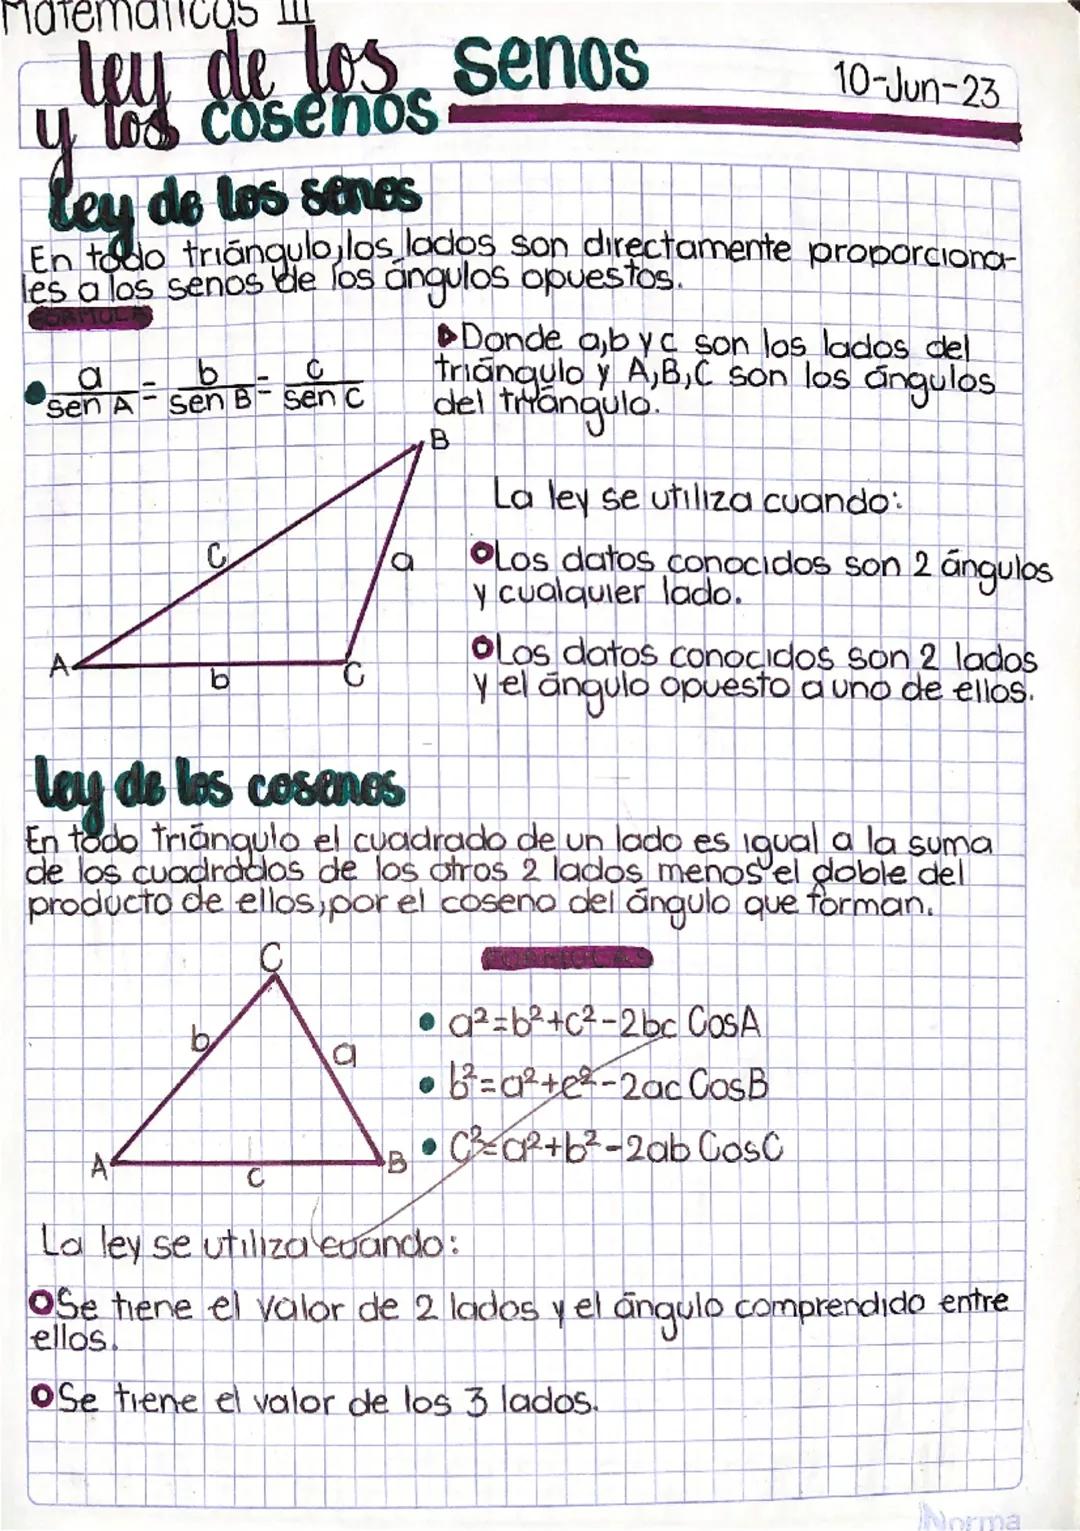 Matemáticas III
ley de los senos
10-Jun-23
y los cosenos
Ley de los senos
En todo triángulo, los lados son directamente proporciona-
les a los senos de los ángulos opuestos.
FORMULA
a/sen A = b/sen B = c/sen C
Donde a, b y c son los lados del
triángulo y A, B, C son los ángulos
del triángulo.
B
c
a
A
b
C
La ley se utiliza cuando:
Los datos conocidos son 2 ángulos
y cualquier lado.
Los datos conocidos son 2 lados
y el ángulo opuesto a uno de ellos.
ley de los cosenos
En todo triángulo el cuadrado de un lado es igual a la suma
de los cuadrados de los otros 2 lados menos el doble del
producto de ellos, por el coseno del ángulo que forman.
C
b
a
A
c
B
FORMULAS
a²=b²+c²-2bc CosA
b²=a²+c²-2ac CosB
C²=a²+b²-2ab CosC
La ley se utiliza cuando:
Se tiene el valor de 2 lados y el ángulo comprendido entre
ellos.
Se tiene el valor de los 3 lados.
Norma